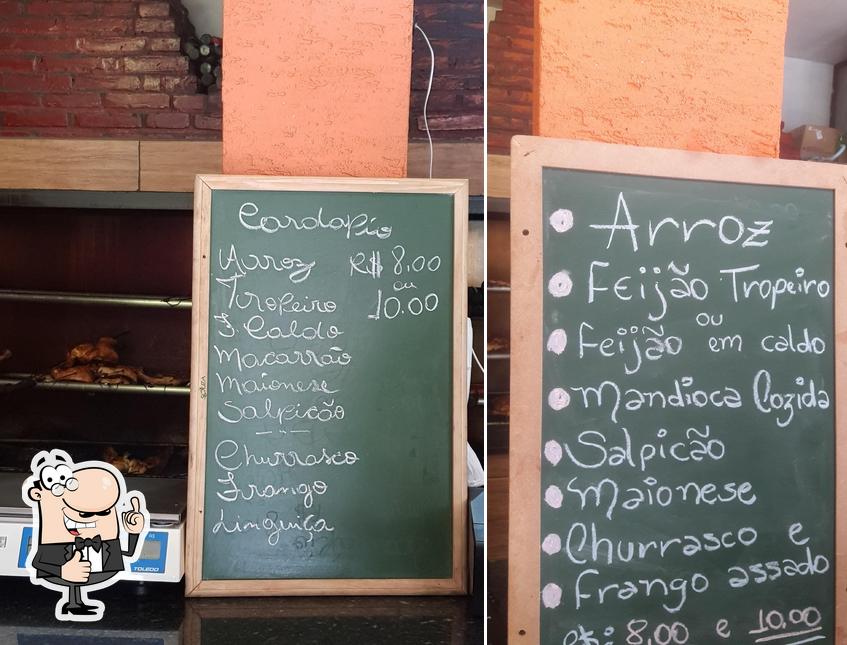 Cardapio
Arroz R$ 8.00
ou
Tropeiro 10.00
F. Caldo
Macarrão
Maionese
Salpicão
Churrasco
Frango
Linguiça
TOLEDO
Arroz
Feijão Tropeiro
ou
Feijão em caldo
Mandioca Cozida
Salpicão
Maionese
Churrasco e
Frango assado
R$: 8,00 e 10.00